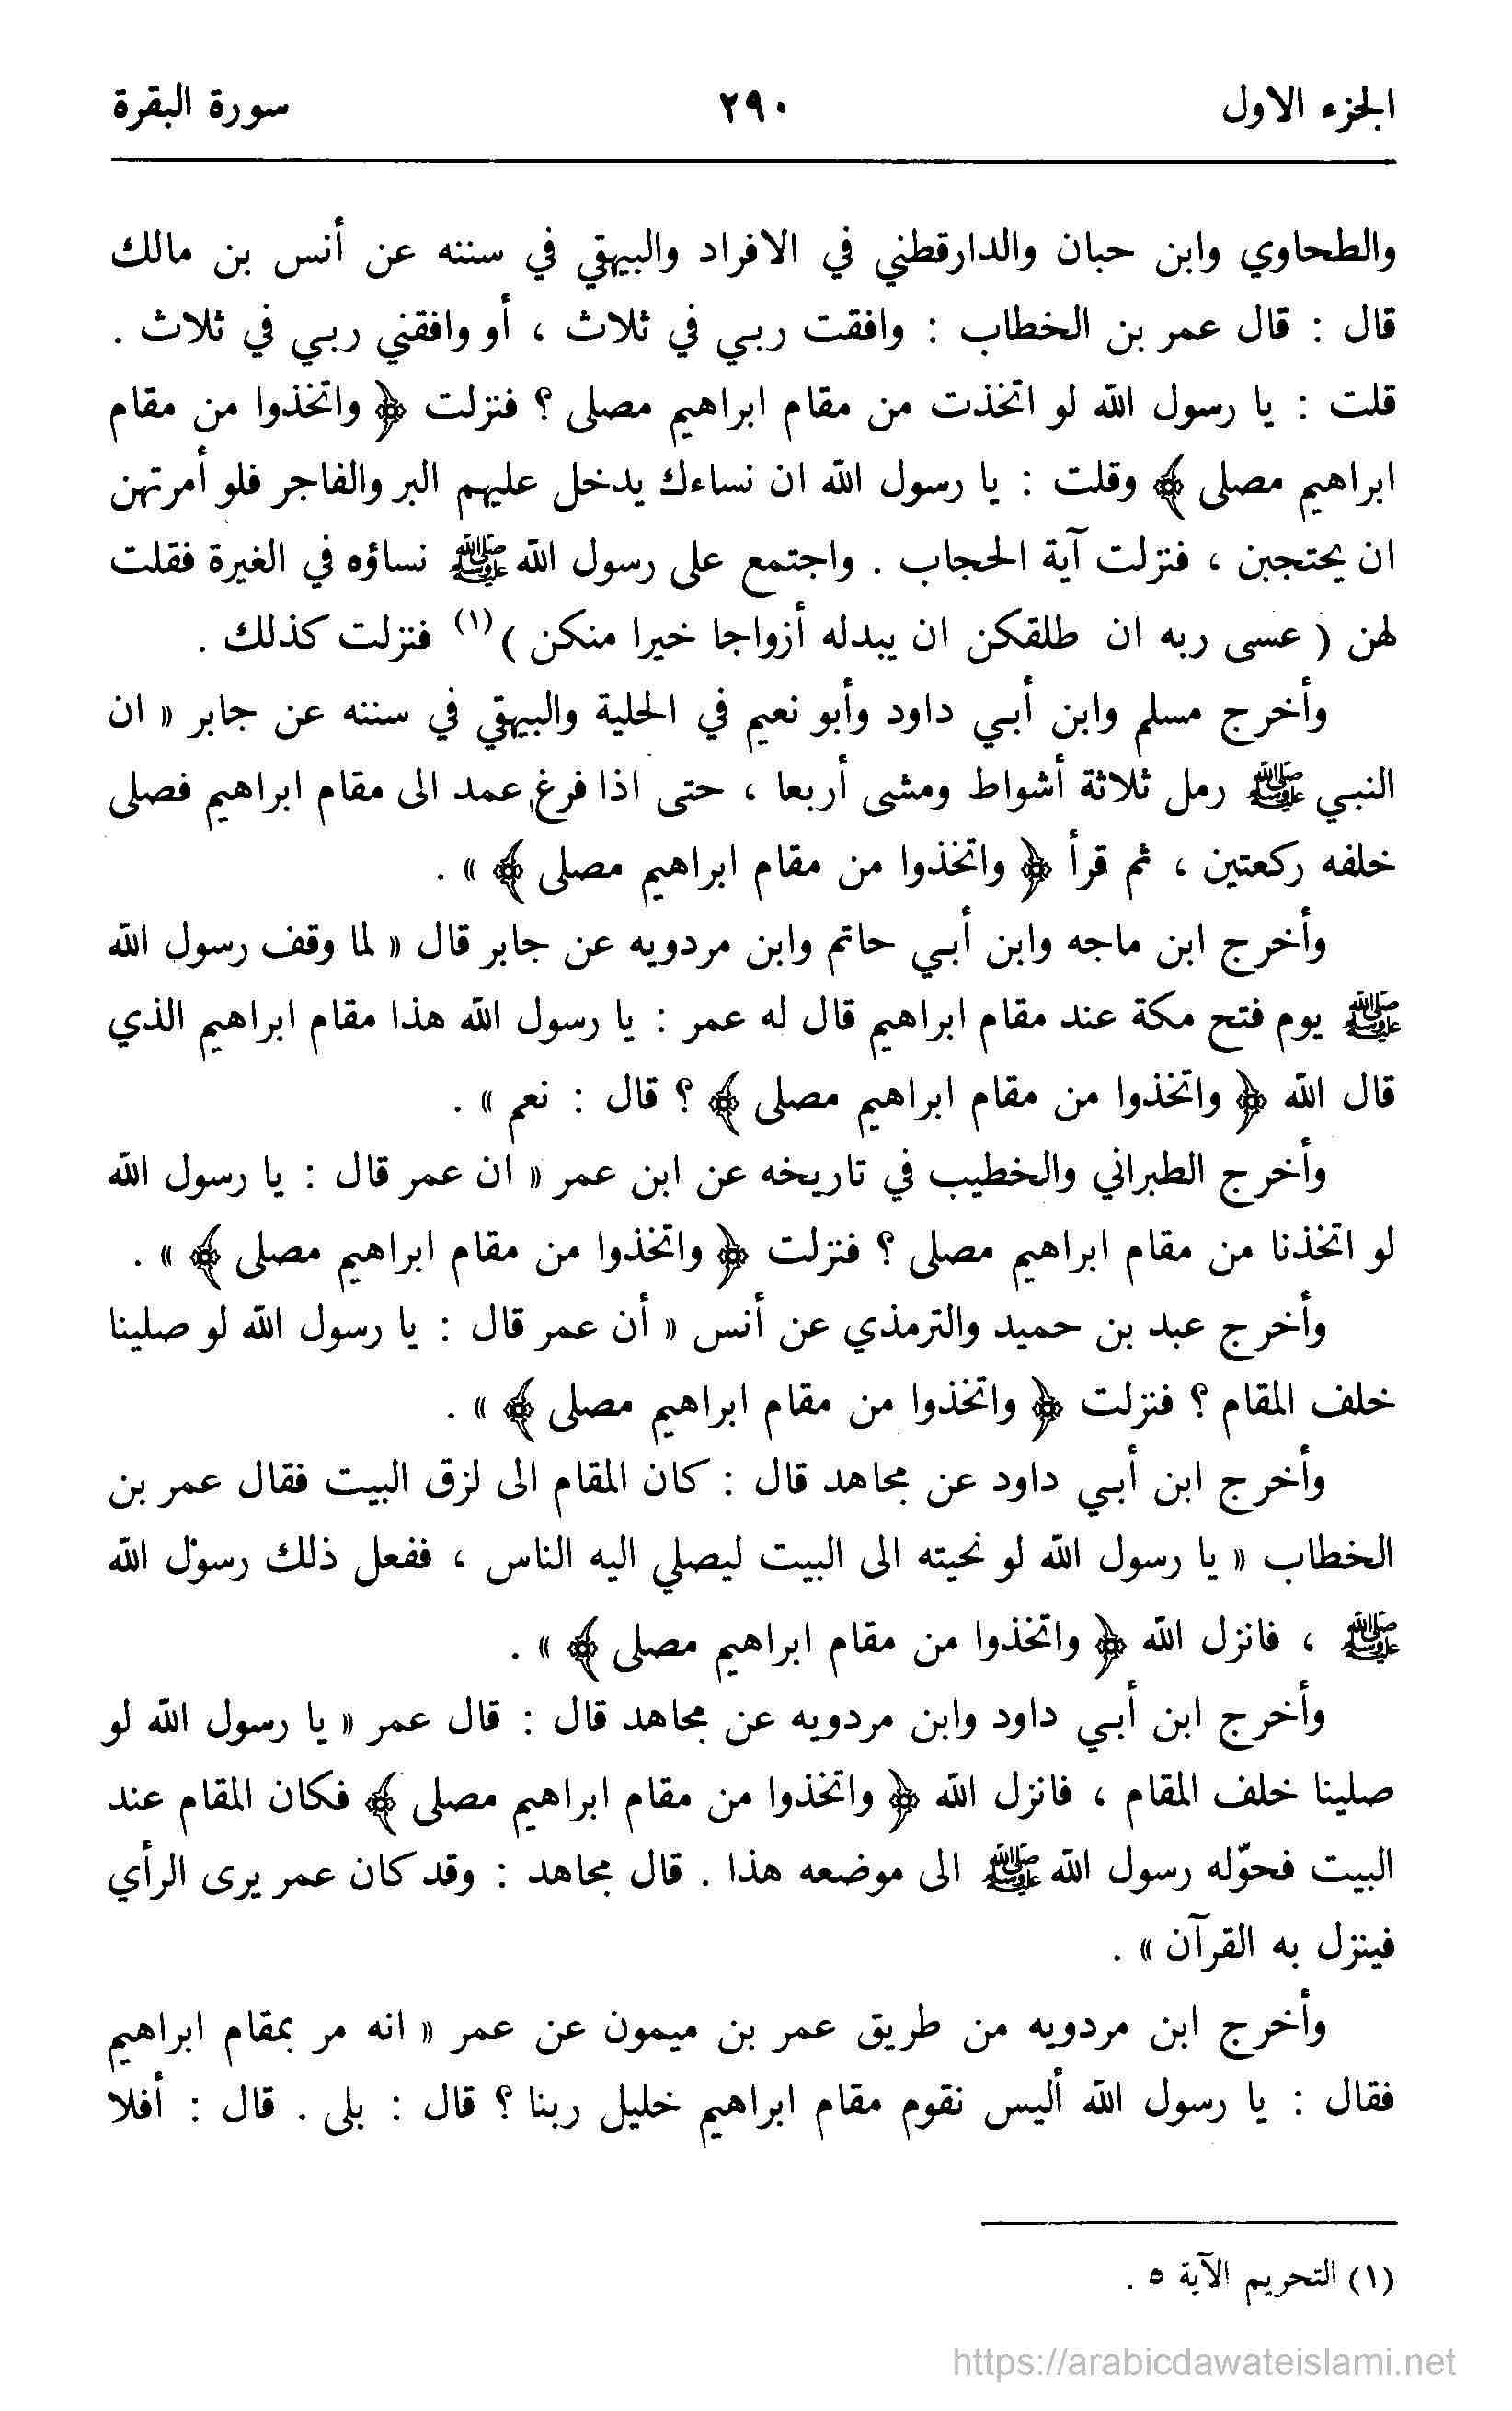 الجزء الاول ٢٩٠ سورة البقرة
والطحاوي وابن حبان والدارقطني في الافراد والبيهقي في سننه عن أنس بن مالك
قال : قال عمر بن الخطاب : وافقت ربي في ثلاث ، أو وافقني ربي في ثلاث .
قلت : يا رسول الله لو اتخذت من مقام ابراهيم مصلى ؟ فنزلت ﴿ واتخذوا من مقام
ابراهيم مصلى ﴾ وقلت : يا رسول الله ان نساءك يدخل عليهم البر والفاجر فلو أمرتهن
ان يحتجبن ، فنزلت آية الحجاب . واجتمع على رسول الله ﷺ نساؤه في الغيرة فقلت
لهن ( عسى ربه ان طلقكن ان يبدله أزواجا خيرا منكن )(١) فنزلت كذلك .
وأخرج مسلم وابن أبي داود وأبو نعيم في الحلية والبيهقي في سننه عن جابر « ان
النبي ﷺ رمل ثلاثة أشواط ومشى أربعا ، حتى اذا فرغ عمد الى مقام ابراهيم فصلى
خلفه ركعتين ، ثم قرأ ﴿ واتخذوا من مقام ابراهيم مصلى ﴾ » .
وأخرج ابن ماجه وابن أبي حاتم وابن مردويه عن جابر قال « لما وقف رسول الله
ﷺ يوم فتح مكة عند مقام ابراهيم قال له عمر : يا رسول الله هذا مقام ابراهيم الذي
قال الله ﴿ واتخذوا من مقام ابراهيم مصلى ﴾ ؟ قال : نعم » .
وأخرج الطبراني والخطيب في تاريخه عن ابن عمر « ان عمر قال : يا رسول الله
لو اتخذنا من مقام ابراهيم مصلى ؟ فنزلت ﴿ واتخذوا من مقام ابراهيم مصلى ﴾ » .
وأخرج عبد بن حميد والترمذي عن أنس « أن عمر قال : يا رسول الله لو صلينا
خلف المقام ؟ فنزلت ﴿ واتخذوا من مقام ابراهيم مصلى ﴾ » .
وأخرج ابن أبي داود عن مجاهد قال : كان المقام الى لزق البيت فقال عمر بن
الخطاب « يا رسول الله لو نحيته الى البيت ليصلي اليه الناس ، ففعل ذلك رسول الله
ﷺ ، فانزل الله ﴿ واتخذوا من مقام ابراهيم مصلى ﴾ » .
وأخرج ابن أبي داود وابن مردويه عن مجاهد قال : قال عمر « يا رسول الله لو
صلينا خلف المقام ، فانزل الله ﴿ واتخذوا من مقام ابراهيم مصلى ﴾ فكان المقام عند
البيت فحوّله رسول الله ﷺ الى موضعه هذا . قال مجاهد : وقد كان عمر يرى الرأي
فينزل به القرآن » .
وأخرج ابن مردويه من طريق عمر بن ميمون عن عمر « انه مر بمقام ابراهيم
فقال : يا رسول الله أليس نقوم مقام ابراهيم خليل ربنا ؟ قال : بلى . قال : أفلا
(١) التحريم الآية ٥ .
https://arabicdawateislami.net